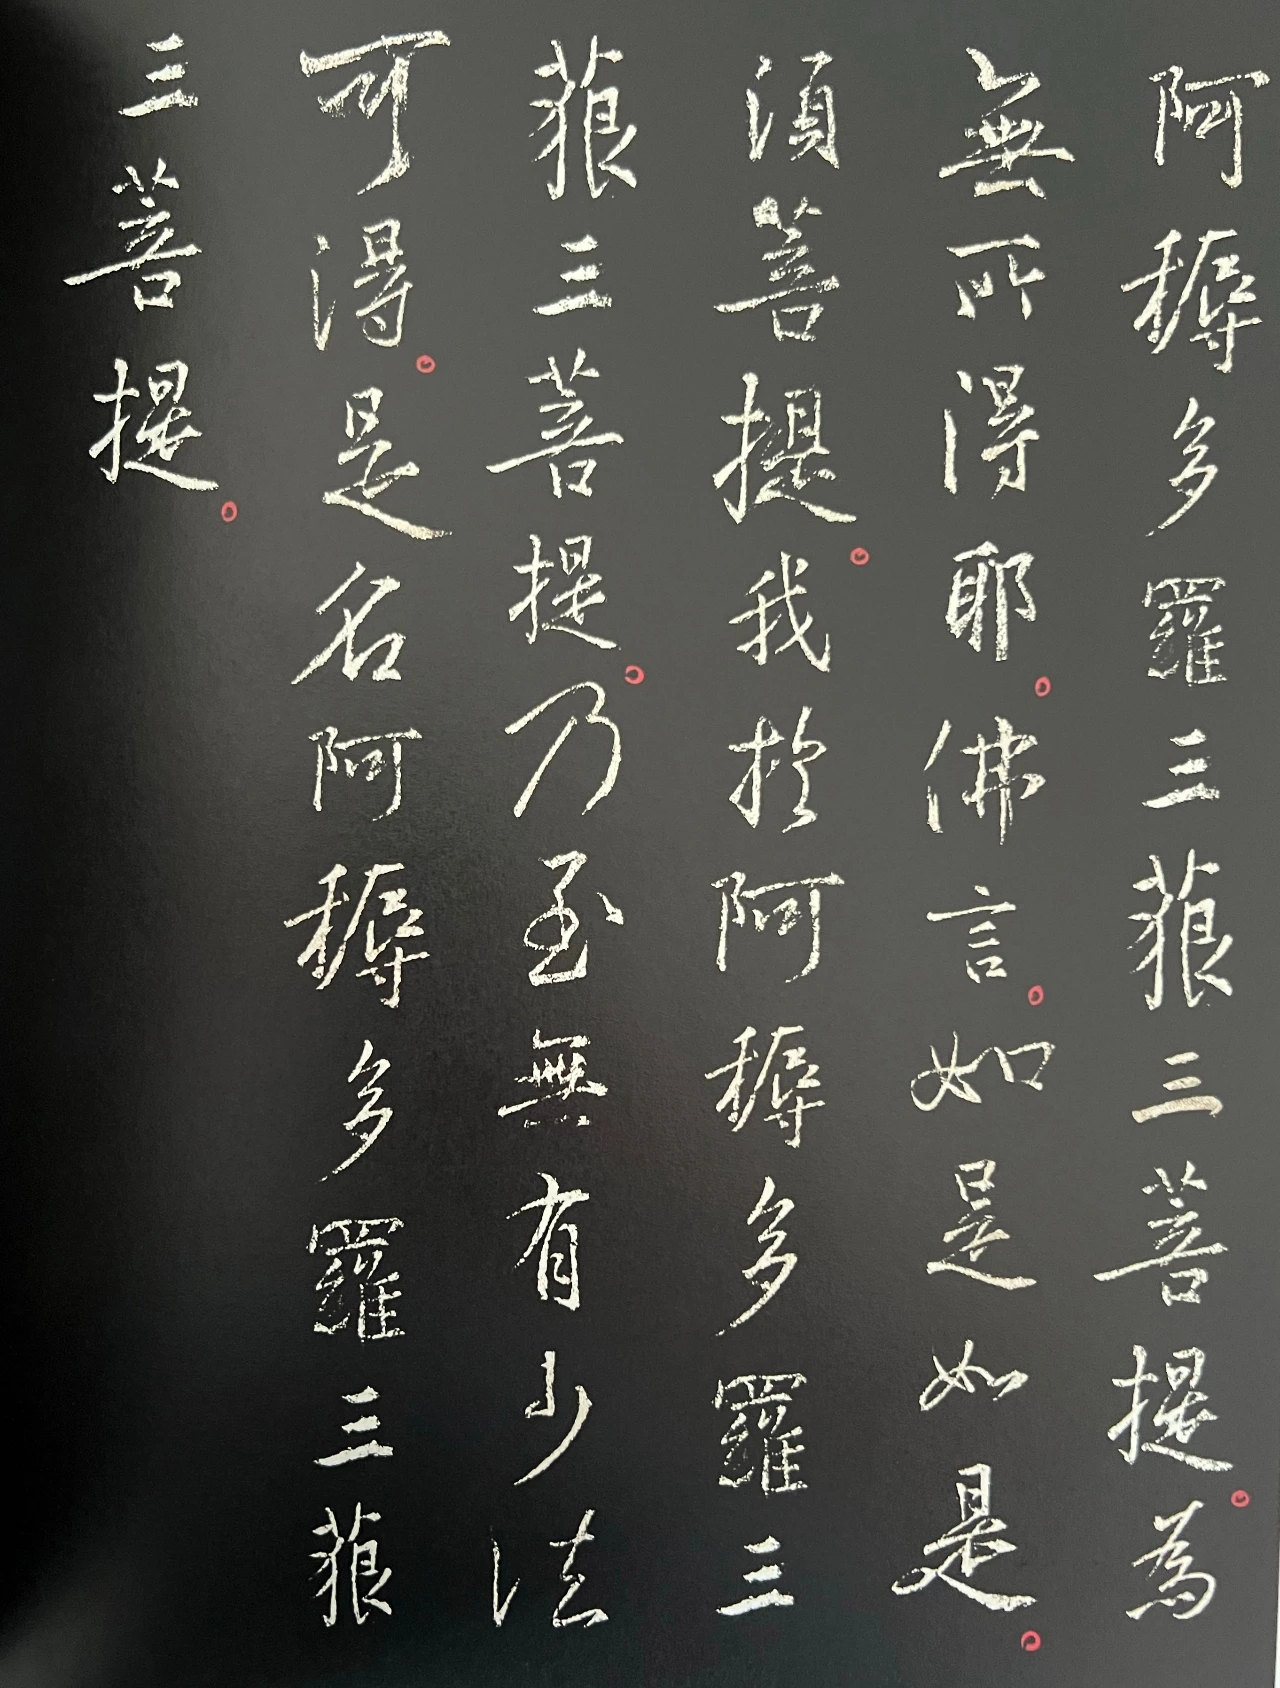 阿耨多羅三藐三菩提。為
無所得耶。佛言。如是如是。
須菩提。我於阿耨多羅三
藐三菩提。乃至無有少法
可得。是名阿耨多羅三藐
三菩提。